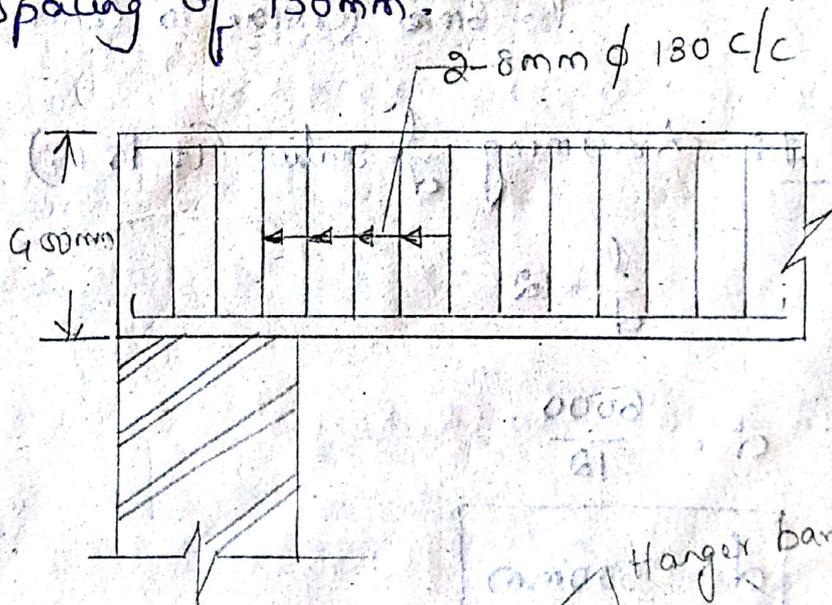 spacing of 130mm.
2-8mm ϕ 130 c/c
Hanger bar